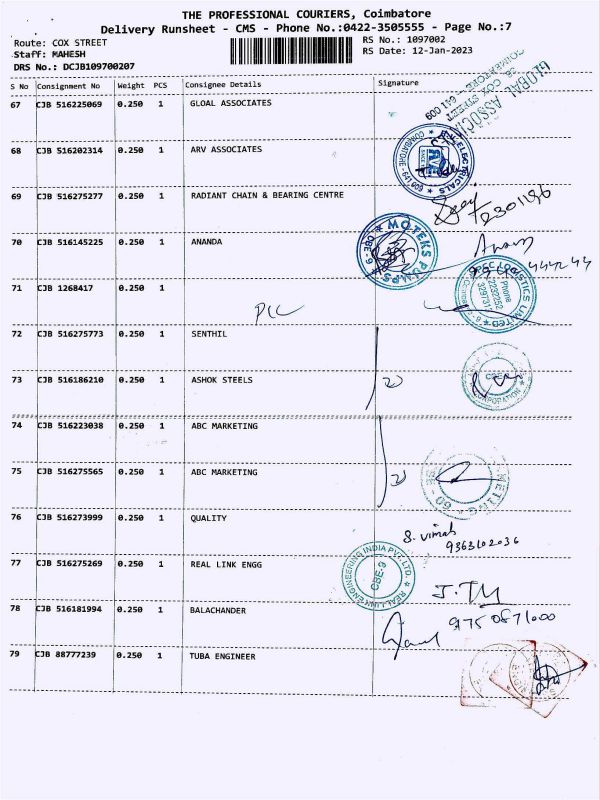 THE PROFESSIONAL COURIERS, Coimbatore
Delivery Runsheet - CMS - Phone No.:0422-3505555 - Page No.:7
Route: COX STREET
RS No.: 1097002
Staff: MAHESH
RS Date: 12-Jan-2023
DRS No.: DCJB109700207
S No Consignment No Weight PCS Consignee Details Signature
67 CJB 516225069 0.250 1 GLOAL ASSOCIATES
GLOBAL ASSOC
COX STREET
641 009
68 CJB 516202314 0.250 1 ARV ASSOCIATES
ELECTRICALS
69 CJB 516275277 0.250 1 RADIANT CHAIN & BEARING CENTRE
70 CJB 516145225 0.250 1 ANANDA
MOTEKS PUMPS
CBE-6
71 CJB 1268417 0.250 1
LOGISTICS LIMITED
Phone
2232252
72 CJB 516275773 0.250 1 SENTHIL
73 CJB 516186210 0.250 1 ASHOK STEELS
CORPORATION
74 CJB 516223038 0.250 1 ABC MARKETING
75 CJB 516275565 0.250 1 ABC MARKETING
76 CJB 516273999 0.250 1 QUALITY
S. Vimal
9363102036
77 CJB 516275269 0.250 1 REAL LINK ENGG
REAL LINK ENGINEERING INDIA PVT. LTD.
CBE-9
78 CJB 516181994 0.250 1 BALACHANDER
79 CJB 88777239 0.250 1 TUBA ENGINEER